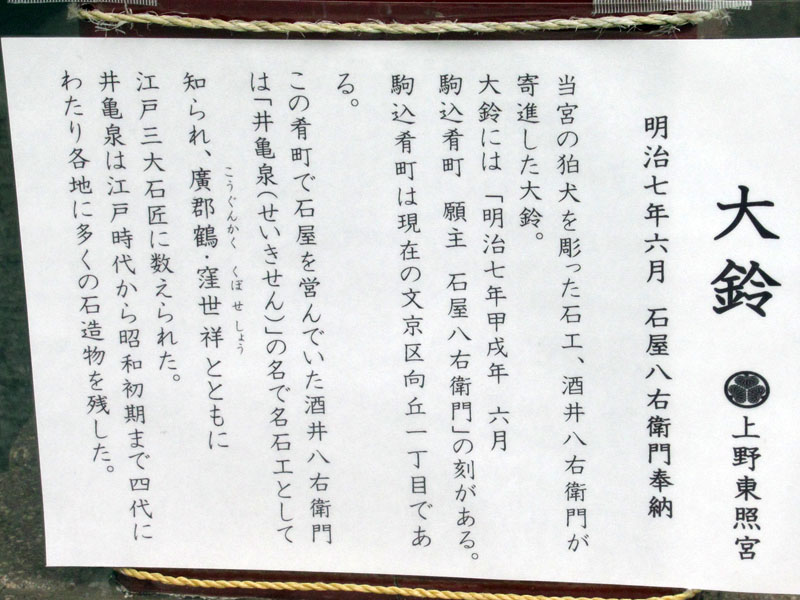 大鈴
上野東照宮
明治七年六月　石屋八右衛門奉納
当宮の狛犬を彫った石工、酒井八右衛門が
寄進した大鈴。
大鈴には「明治七年甲戌年　六月
駒込肴町　願主　石屋八右衛門」の刻がある。
駒込肴町は現在の文京区向丘一丁目であ
る。
この肴町で石屋を営んでいた酒井八右衛門
は「井亀泉（せいきせん）」の名で名石工として
こうぐんかく　くぼ　せ　しょう
知られ、廣郡鶴・窪世祥とともに
江戸三大石匠に数えられた。
井亀泉は江戸時代から昭和初期まで四代に
わたり各地に多くの石造物を残した。